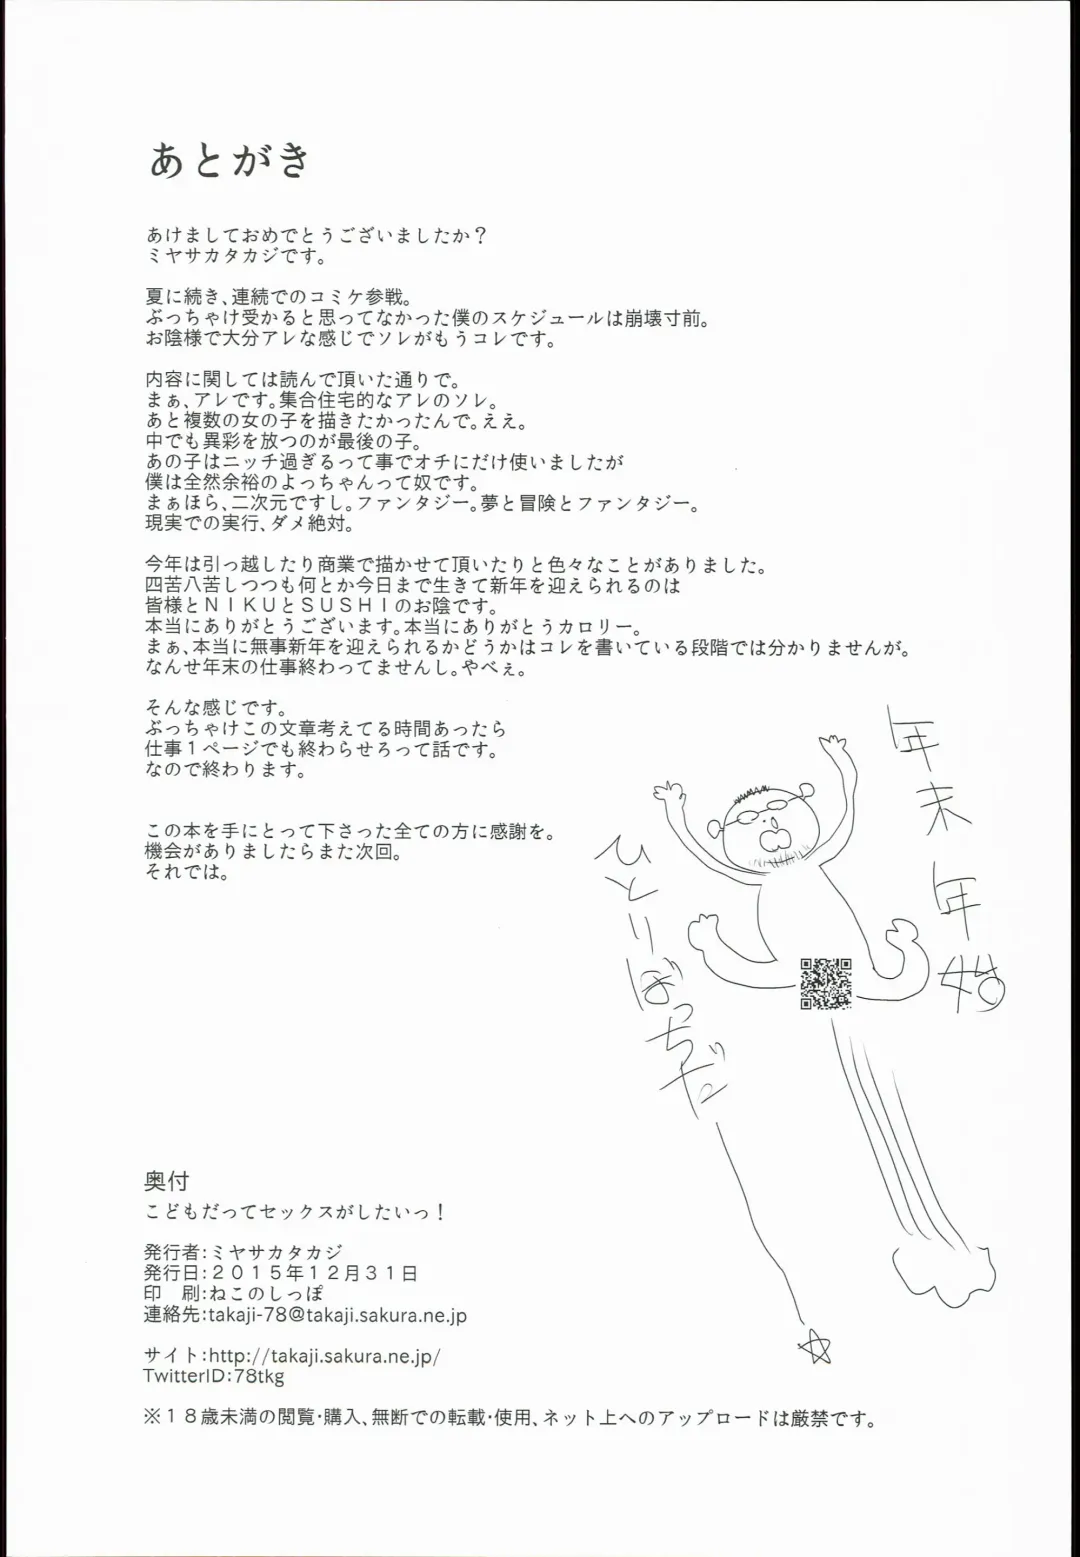 あとがき
あけましておめでとうございましたか？
ミヤサカタカジです。
夏に続き、連続でのコミケ参戦。
ぶっちゃけ受かると思ってなかった僕のスケジュールは崩壊寸前。
お陰様で大分アレな感じでソレがもうコレです。
内容に関しては読んで頂いた通りで。
まぁ、アレです。集合住宅的なアレのソレ。
あと複数の女の子を描きたかったんで。ええ。
中でも異彩を放つのが最後の子。
あの子はニッチ過ぎるって事でオチにだけ使いましたが
僕は全然余裕のよっちゃんって奴です。
まぁほら、二次元ですし。ファンタジー。夢と冒険とファンタジー。
現実での実行、ダメ絶対。
今年は引っ越したり商業で描かせて頂いたりと色々なことがありました。
四苦八苦しつつも何とか今日まで生きて新年を迎えられるのは
皆様とＮＩＫＵとＳＵＳＨＩのお陰です。
本当にありがとうございます。本当にありがとうカロリー。
まぁ、本当に無事新年を迎えられるかどうかはコレを書いている段階では分かりませんが。
なんせ年末の仕事終わってませんし。やべぇ。
そんな感じです。
ぶっちゃけこの文章考えてる時間あったら
仕事１ページでも終わらせろって話です。
なので終わります。
この本を手にとって下さった全ての方に感謝を。
機会がありましたらまた次回。
それでは。
年末年始
ひとりぼっちだ
奥付
こどもだってセックスがしたいっ！
発行者：ミヤサカタカジ
発行日：２０１５年１２月３１日
印　刷：ねこのしっぽ
連絡先：takaji-78@takaji.sakura.ne.jp
サイト：http://takaji.sakura.ne.jp/
TwitterID：78tkg
※１８歳未満の閲覧・購入、無断での転載・使用、ネット上へのアップロードは厳禁です。